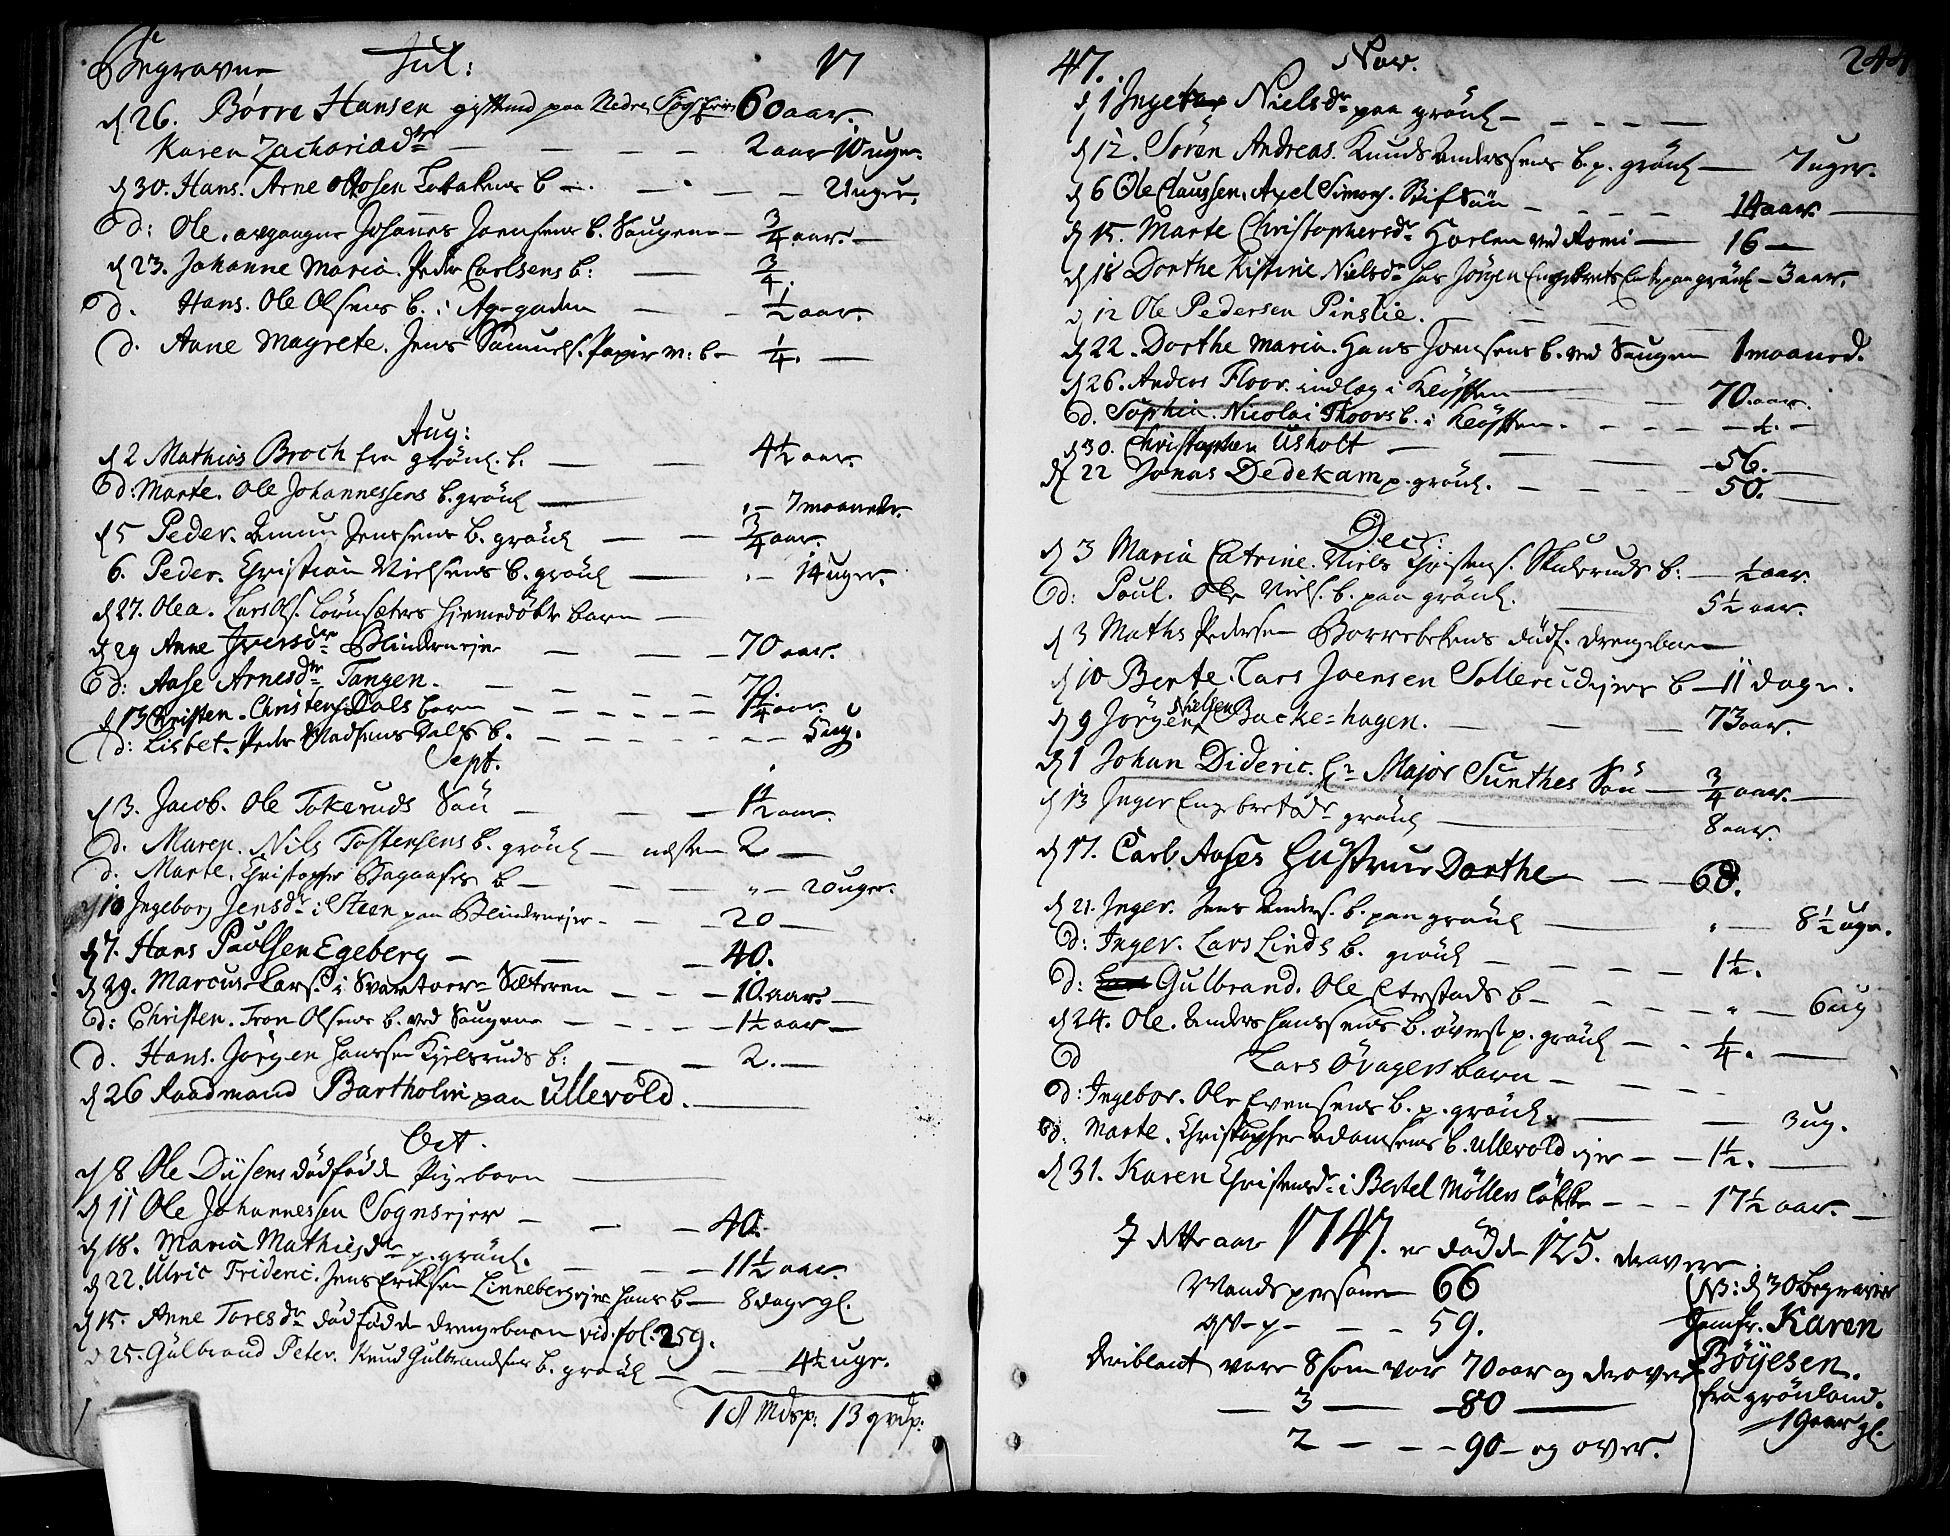 Begravne Jul: 17
d 26. Børre Hansen gift mand paa Nedre 60 aar.
Karen Zachariæd: — 2 aar 10 uger.
d 30. Hans. Arne Ottosen b — 2 uger.
d: Ole. Johannes Joensens b. Saugene — 3/4 aar. —
d 23. Johanne Maria. Peder Carlsens b: — 3/4.
d. Hans. Ole Olsens b. i Agergaden — 1/2 aar.
d. Anne Magrete. Jens Samuels. Papir m: b — 1/4. —
Aug:
d 2 Mathias Broch fra grönl. b. — 4 1/2 aar.
d: Marte. Ole Johannessens b. grönl — 7 maaneder.
d 5 Peder. Amun Jenssens b. grönl — 3/4 aar.
6. Peder. Christian Nielsens b. grönl — 14 uger.
d 27. Olea. Lars Ols. hiemedöbte barn —
d 29 Anne Iversdr Blinderneje — 70 aar.
d: Aase Arnesdtr Tangen. — 70.
d 13 Christen. Christens Dals barn — 1 1/4 aar.
d: Lisbet. Peder Madsens Dals b. — 5 ug.
Sept.
d 3. Jacob. Ole Tokeruds Sön — 1 1/2 aar.
d. Maren. Nils Tostensens b. grönl — næsten 2 —
d. Marte. Christopher b — 20 uger.
d 10 Ingeborg Jensdr i Steen paa Blinderneje — 20 —
d 7. Hans Paulsen Egeberg — 40.
d 29. Marcus Lars. i Svartoer Sæteren — 10. aar. —
d: Christen. Tron Olsens b. ved Saugene — 1 1/2 aar —
d. Hans. Jörgen Hanssen Kjelsruds b: — 2. —
d 26 Raadmand Bartholin paa Ullevold. —
Oct.
d 8. Ole Diisens dödfödde Pigebarn —
d 11 Ole Johannessen Sognsejer — 40.
d 18. Maria Mathiesdr p. grönl. — 11 1/2 aar.
d 22. Ulric Frideric. Jens Eriksen Linnebergejer hans b — 8 dage gl.
d 15. Anne Toresdr dödfödde drengebarn vid. fol. 259.
d 25. Gulbrand Peter. Knud Gulbrandsens b. grönl — 4 1/2 uger.
18 Mdsp: 13 qvdp:
47. Nov. 244
d 1 Ingebor Nielsdr paa grönl —
d 12. Sören Andreas. Knud Anderssens b. p. grönl — 7 uger.
d 6 Ole Claussen. Axel Simons. Stifsön — 14 aar. —
d 15. Marte Christophersdr ved — 16 —
d 18 Dorthe Kistine Nielsdr hos Jörgen Engebrets paa grönl — 3 aar.
d 12 Ole Pedersen Pinslie. —
d 22. Dorthe Maria. Hans Joensens b. ved Saugen 1 maaned.
d 26. Anders Floor. indlag i Klöften — 70. aar.
d. Sophia. Nicolai Floors b. i Klöften. —
d 30. Christopher Usholt — 56. —
d 22 Jonas Dedekam p. grönl. — 50. —
Dec:
d 3 Maria Catrine. Niels Christens. b: — 1/2 aar.
d: Poul. Ole Niels. b. paa grönl. — 5 1/2 aar.
d 3 Maths Pedersen Borrebekens dödf. drengebarn
d 10 Berte. Lars Joensen b — 11 dage.
d 9 Jörgen Nielsen Backe=hagen. — 73 aar.
d 1 Johan Dideric. Hr Major Sunthes Sön — 3/4 aar. —
d 13 Inger Engebretsdr grönl — 8 aar.
d 17. Carl Aases Hustrue Dorthe — 60.
d 21. Inger. Jens Anders. b. paa grönl — 8 1/2 uge.
d: Inger. Lars Linds b. grönl — 1 1/2.
d: Gulbrand. Ole Etterstads b — 6 ug
d 24. Ole. Anders Hanssens b. överst p. grönl — 1/4. —
d Lars Övagers barn —
d: Ingebor. Ole Evensens b. p. grönl. — 3 ug.
d: Marte. Christopher Adamsens b. Ullevold ejer — 1 1/2. —
d 31. Karen Christensdr i Bertel Möllers lökke — 17 1/2 aar. —
I dette aar 1747. er dödde 125. deraf vare
Mandspersoner 66
qv — p — 59.
deriblant vare 8 som var 70 aar og derover
— 3 — 80 —
2 — 90 — og over.
NB: d 30 begraven
Jomfr. Karen
Böyesen.
fra grönland.
19 aar gl.